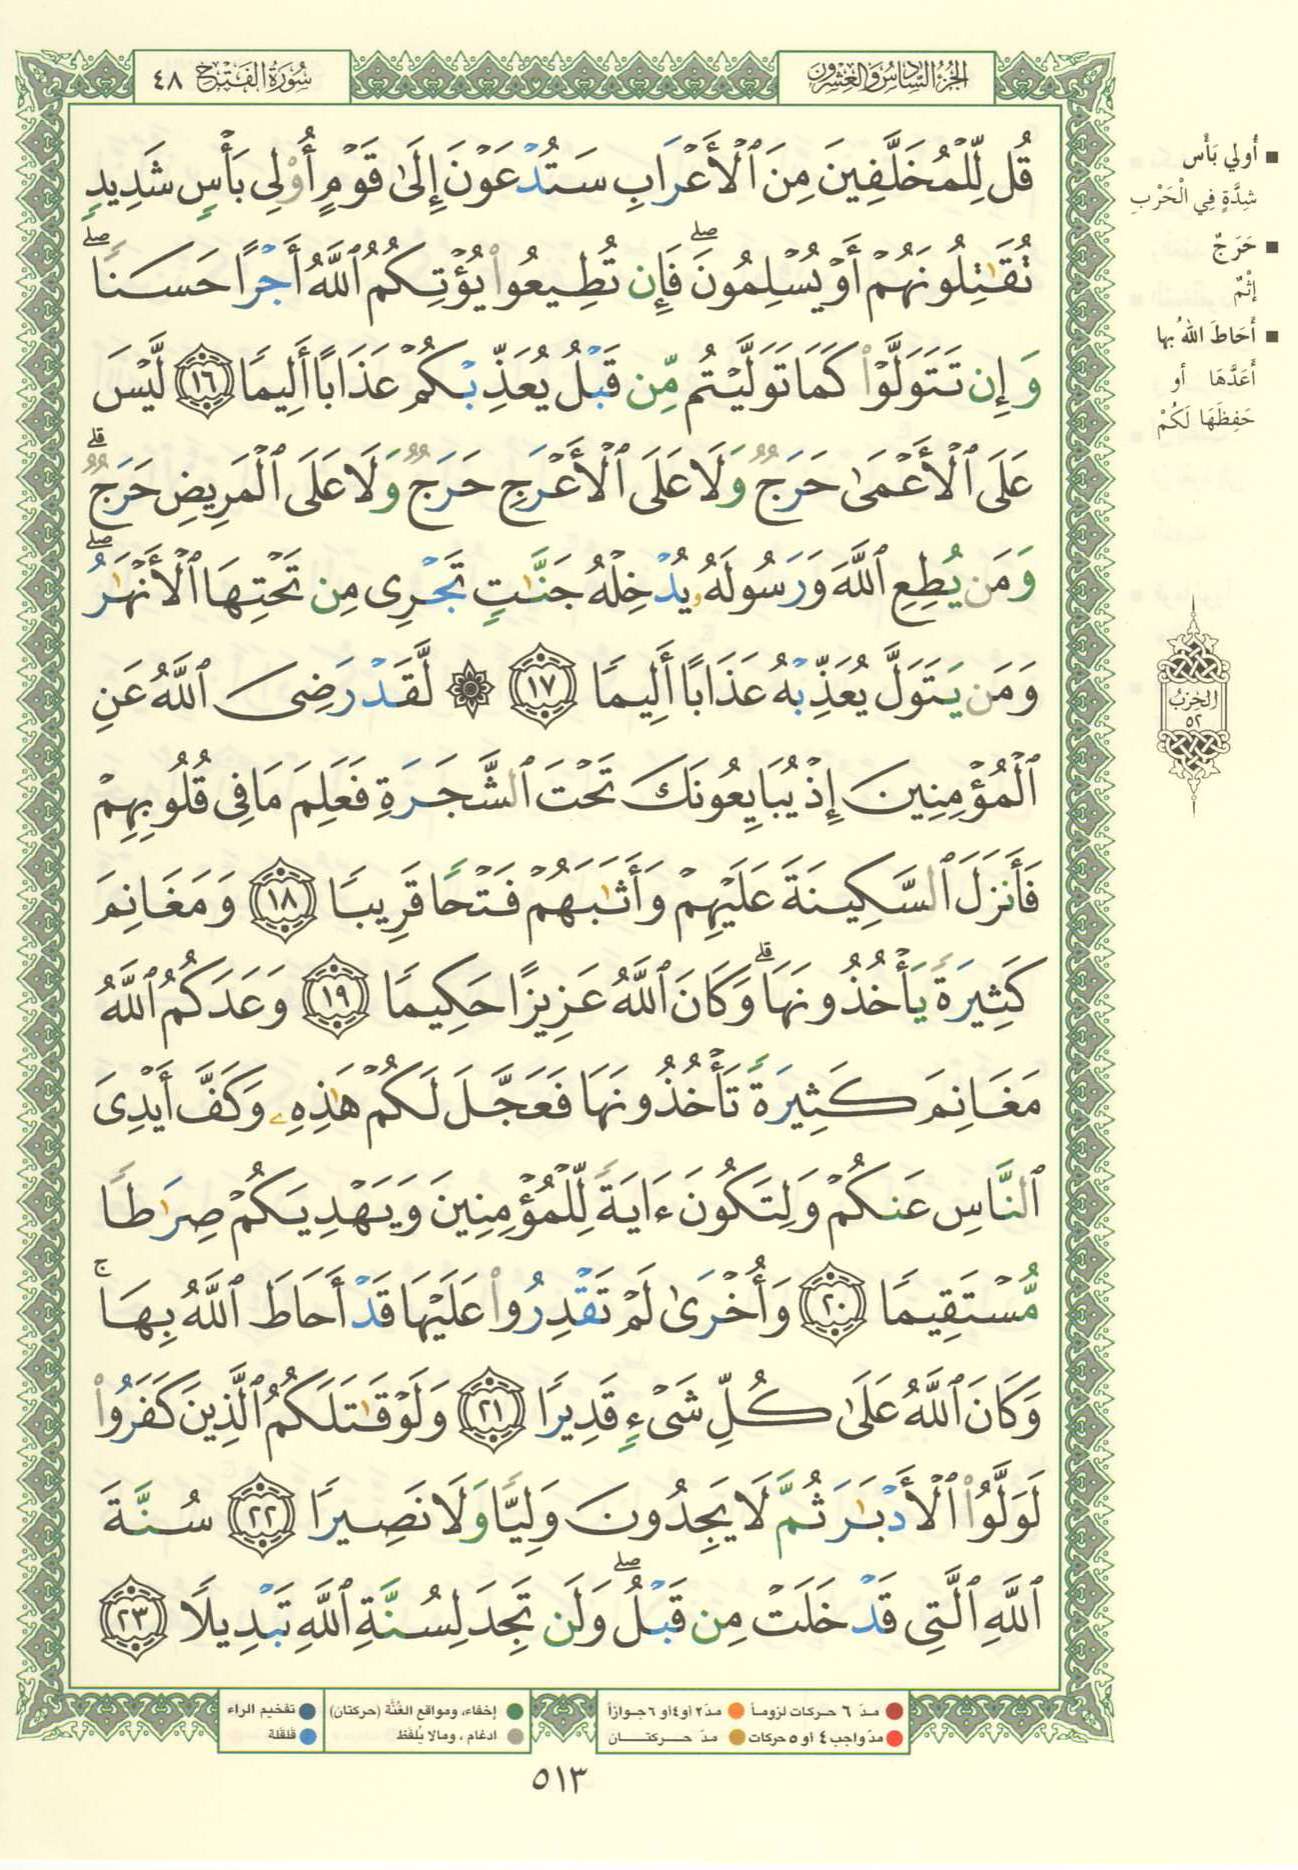 الجُزْءُ السَّادِسُ وَالعِشْرُونَ
سُورَةُ الفَتْحِ ٤٨
قُل لِّلْمُخَلَّفِينَ مِنَ ٱلْأَعْرَابِ سَتُدْعَوْنَ إِلَىٰ قَوْمٍ أُو۟لِى بَأْسٍ شَدِيدٍ
تُقَـٰتِلُونَهُمْ أَوْ يُسْلِمُونَ ۖ فَإِن تُطِيعُوا۟ يُؤْتِكُمُ ٱللَّهُ أَجْرًا حَسَنًا ۖ
وَإِن تَتَوَلَّوْا۟ كَمَا تَوَلَّيْتُم مِّن قَبْلُ يُعَذِّبْكُمْ عَذَابًا أَلِيمًا ١٦ لَّيْسَ
عَلَى ٱلْأَعْمَىٰ حَرَجٌ وَلَا عَلَى ٱلْأَعْرَجِ حَرَجٌ وَلَا عَلَى ٱلْمَرِيضِ حَرَجٌ ۗ
وَمَن يُطِعِ ٱللَّهَ وَرَسُولَهُۥ يُدْخِلْهُ جَنَّـٰتٍ تَجْرِى مِن تَحْتِهَا ٱلْأَنْهَـٰرُ ۖ
وَمَن يَتَوَلَّ يُعَذِّبْهُ عَذَابًا أَلِيمًا ١٧ ۞ لَّقَدْ رَضِىَ ٱللَّهُ عَنِ
ٱلْمُؤْمِنِينَ إِذْ يُبَايِعُونَكَ تَحْتَ ٱلشَّجَرَةِ فَعَلِمَ مَا فِى قُلُوبِهِمْ
فَأَنزَلَ ٱلسَّكِينَةَ عَلَيْهِمْ وَأَثَـٰبَهُمْ فَتْحًا قَرِيبًا ١٨ وَمَغَانِمَ
كَثِيرَةً يَأْخُذُونَهَا ۗ وَكَانَ ٱللَّهُ عَزِيزًا حَكِيمًا ١٩ وَعَدَكُمُ ٱللَّهُ
مَغَانِمَ كَثِيرَةً تَأْخُذُونَهَا فَعَجَّلَ لَكُمْ هَـٰذِهِۦ وَكَفَّ أَيْدِىَ
ٱلنَّاسِ عَنكُمْ وَلِتَكُونَ ءَايَةً لِّلْمُؤْمِنِينَ وَيَهْدِيَكُمْ صِرَٰطًا
مُّسْتَقِيمًا ٢٠ وَأُخْرَىٰ لَمْ تَقْدِرُوا۟ عَلَيْهَا قَدْ أَحَاطَ ٱللَّهُ بِهَا ۚ
وَكَانَ ٱللَّهُ عَلَىٰ كُلِّ شَىْءٍ قَدِيرًا ٢١ وَلَوْ قَـٰتَلَكُمُ ٱلَّذِينَ كَفَرُوا۟
لَوَلَّوُا۟ ٱلْأَدْبَـٰرَ ثُمَّ لَا يَجِدُونَ وَلِيًّا وَلَا نَصِيرًا ٢٢ سُنَّةَ
ٱللَّهِ ٱلَّتِى قَدْ خَلَتْ مِن قَبْلُ ۖ وَلَن تَجِدَ لِسُنَّةِ ٱللَّهِ تَبْدِيلًا ٢٣
أُولِي بَأْسٍ
شِدَّةٍ فِي الْحَرْبِ
حَرَجٌ
إِثْمٌ
أَحَاطَ اللهُ بِهَا
أَعَدَّهَا أو
حَفِظَهَا لَكُمْ
الحِزْبُ
٥٢
مدّ ٦ حركات لزوماً
مدّ ٢ أو ٤ أو ٦ جوازاً
إخفاء، ومواقع الغُنَّة (حركتان)
تفخيم الراء
مدّ واجب ٤ أو ٥ حركات
مدّ حركتان
ادغام، ومالا يُلفَظ
قلقلة
٥١٣